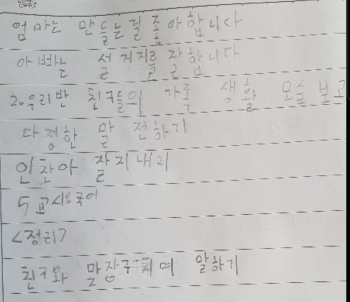 엄마는 만들는걸 좋아합니다
아빠는 설거지를 잘합니다
2. 우리반 친구들의 가족 생활 모습 보고
다정한 말 전하기
인찬아 잘지내리
5교시:국어
<정리>
친구와 맞장구치며 말하기